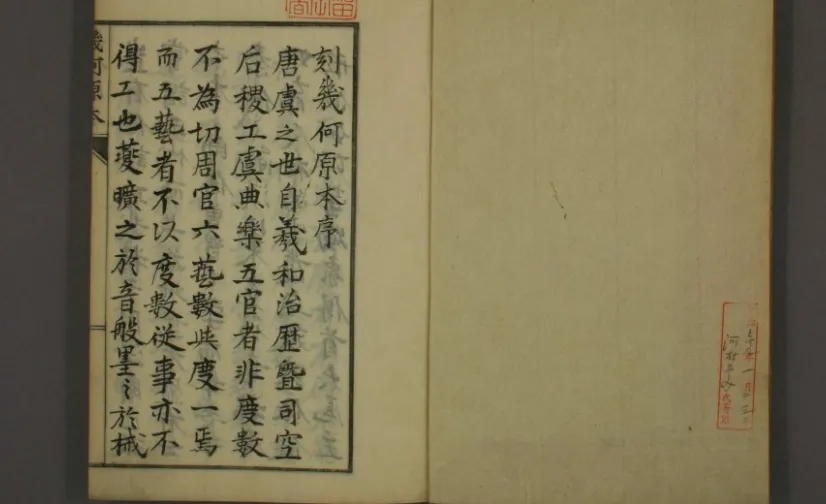 刻幾何原本序
唐虞之世自羲和治歷暨司空
后稷工虞典樂五官者非度數
不為切周官六藝數與度一焉
而五藝者不以度數從事亦不
得工也夔曠之於音般墨之於械
幾何原本